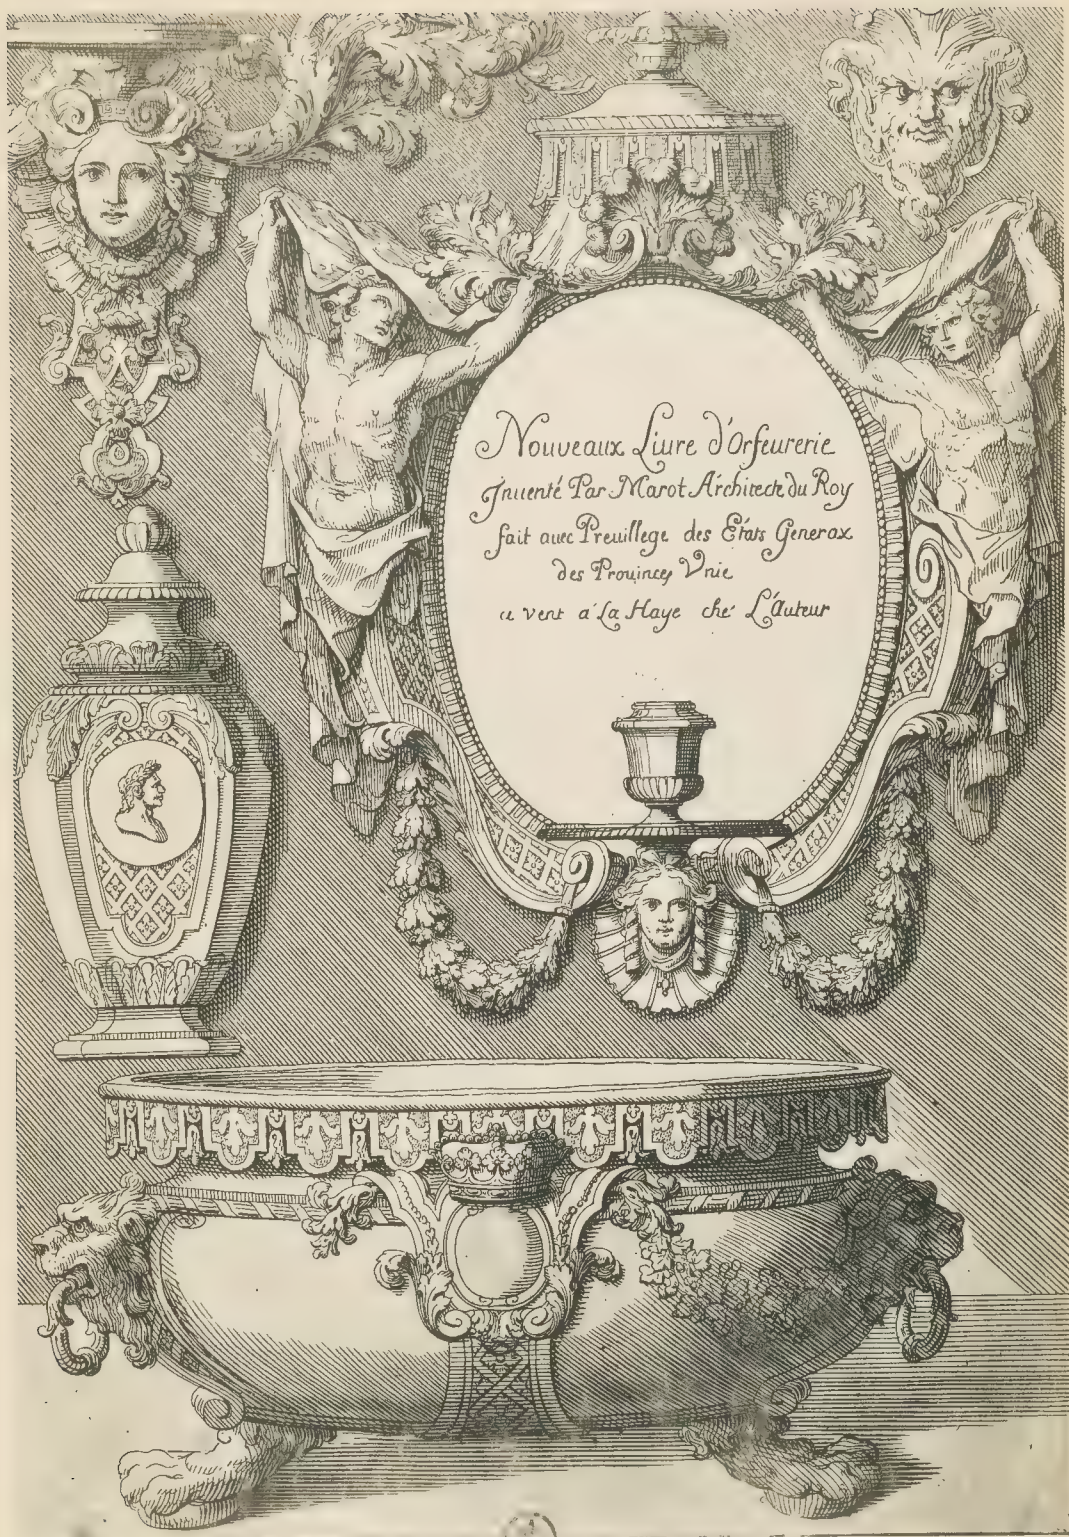 Nouveaux Liure d'Orfeurerie
Jnuenté Par Marot Architecte du Roy
fait auec Preuillege des Etáts Generax
des Prouinces Vnie
a vent a La Haye ché L'auteur